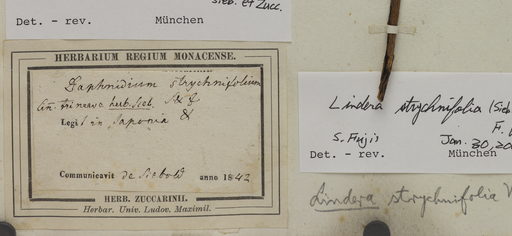 Sieb. et Zucc.
Det. - rev. München
HERBARIUM REGIUM MONACENSE.
Daphnidium strychnifolium
herb. Sieb. S & Z
Legit in Japonia
Communicavit de Siebold anno 1842
HERB. ZUCCARINII.
Herbar. Univ. Ludov. Maximil.
Lindera strychnifolia (Sieb
F.
S. Fujii Jan. 30, 20
Det. - rev. München
Lindera strychnifolia